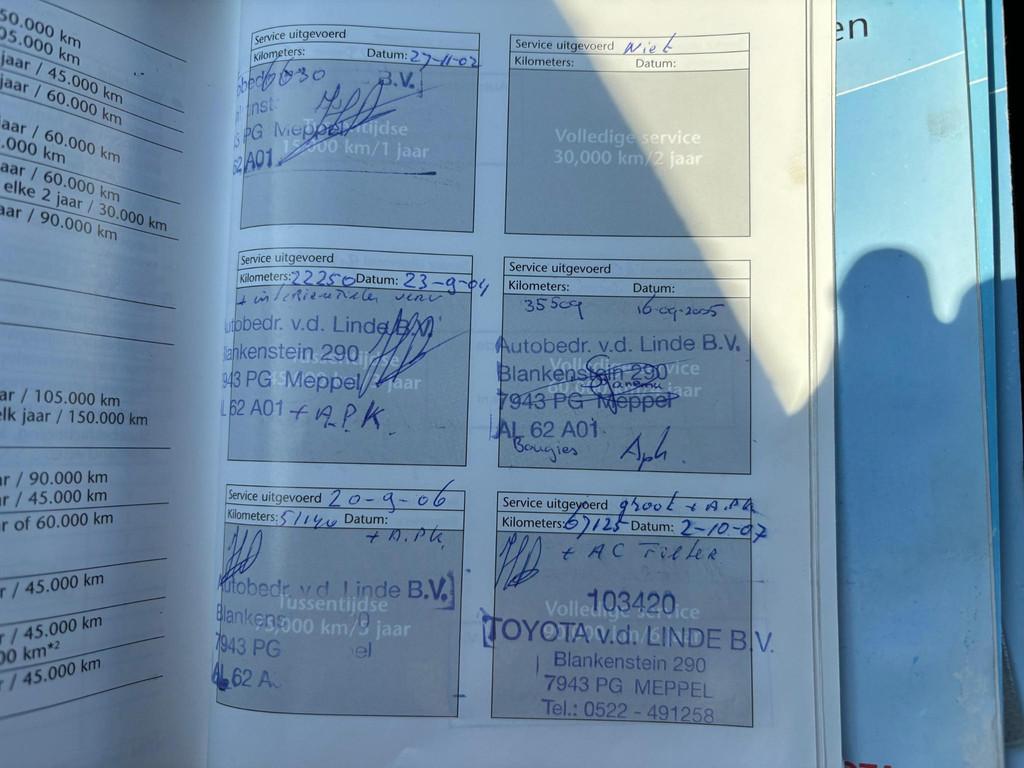 50.000 km
05.000 km
jaar / 45.000 km
jaar / 60.000 km
aar / 60.000 km
.000 km
aar / 60.000 km
elke 2 jaar / 30.000 km
aar / 90.000 km
ar / 105.000 km
elk jaar / 150.000 km
ar / 90.000 km
r / 45.000 km
r of 60.000 km
r / 45.000 km
r / 45.000 km
00 km*2
r / 45.000 km
Service uitgevoerd
Kilometers: Datum: 27-11-02
B.V.
PG Meppel
Tussentijdse
15.000 km/1 jaar
62 A01
Service uitgevoerd Niet
Kilometers: Datum:
Volledige service
30,000 km/2 jaar
Service uitgevoerd
Kilometers: 22250 Datum: 23-9-04
utobedr. v.d. Linde B.V.
Blankenstein 290
943 PG Meppel
jaar
L 62 A01 + A.P.K.
Service uitgevoerd
Kilometers: Datum:
35509 16-09-2005
Autobedr. v.d. Linde B.V.
Blankenstein 290
7943 PG Meppel
AL 62 A01
Bougies Apk.
Service uitgevoerd 20-9-06
Kilometers: 51140 Datum:
+ A.P.K.
Autobedr. v.d. Linde B.V.
Tussentijdse
Blankens 0
000 km/5 jaar
7943 PG el
AL 62 A
Service uitgevoerd groot + A.P.K
Kilometers: 67125 Datum: 2-10-07
+ AC Filter
103420
Volledige service
TOYOTA v.d. LINDE B.V.
Blankenstein 290
7943 PG MEPPEL
Tel.: 0522 - 491258
en